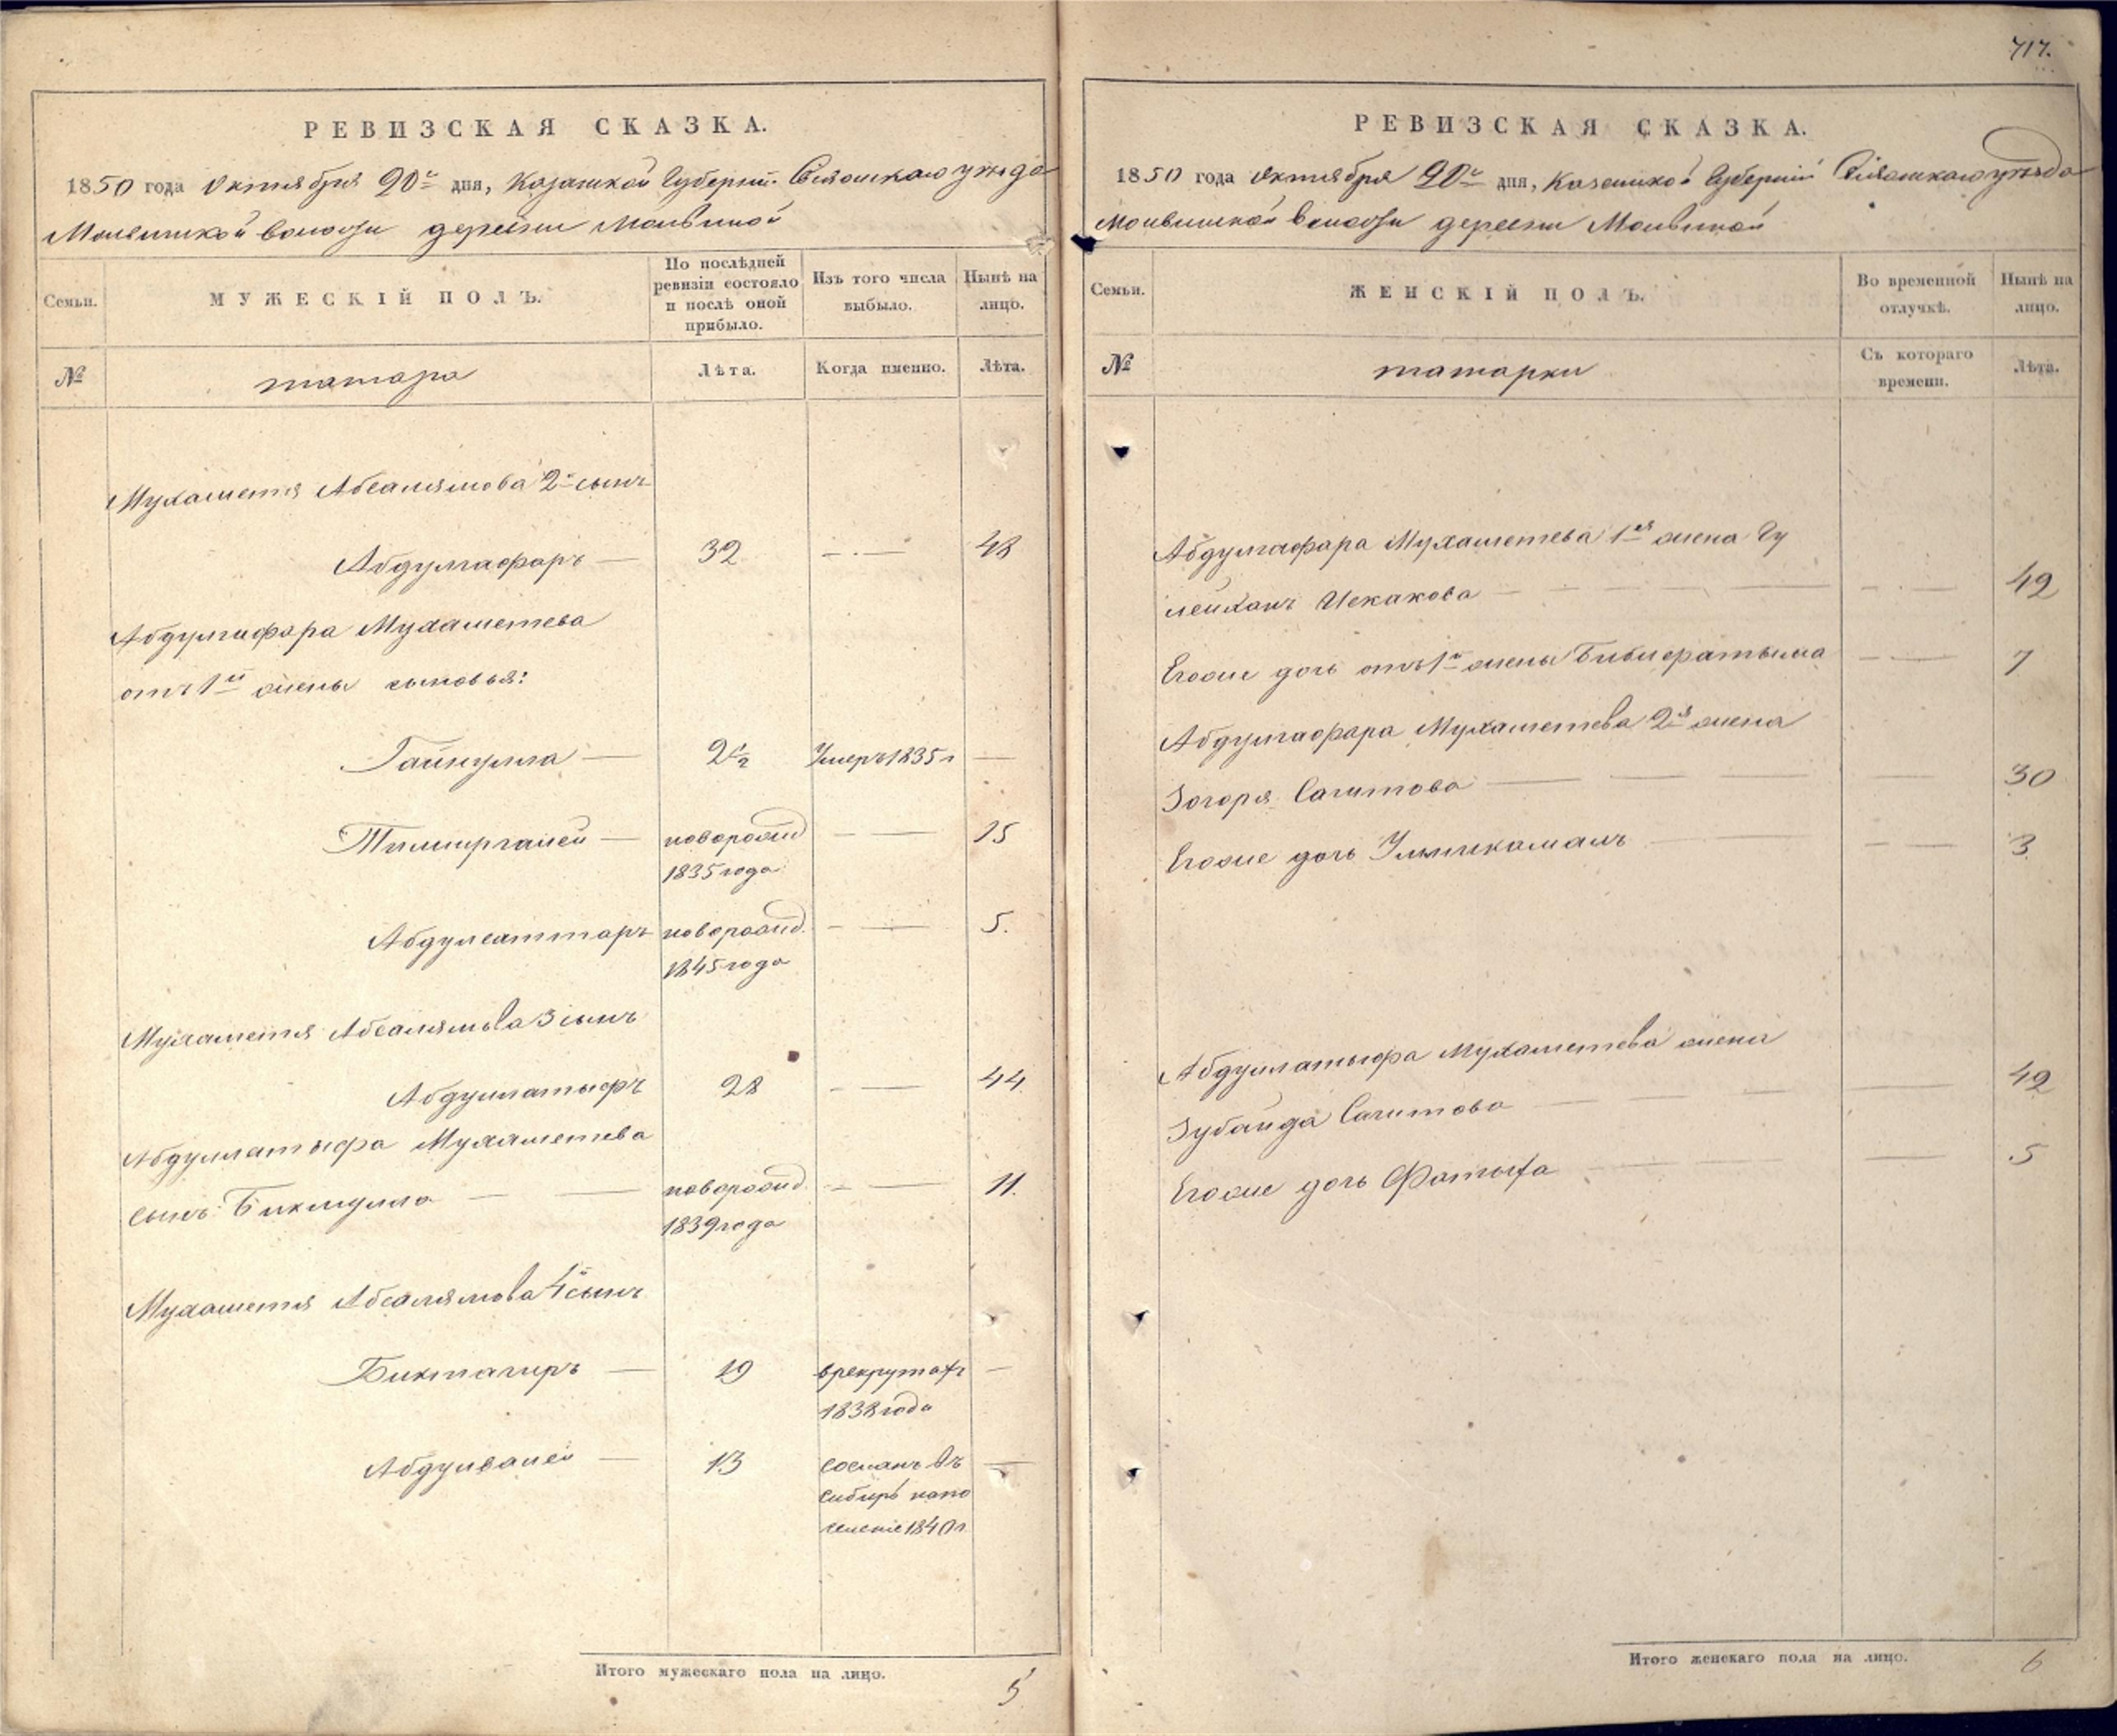 РЕВИЗСКАЯ СКАЗКА.
1850 года Октября 20го дня, Казанской Губерніи Свіяжскаго уѣзда
волости деревни
Семьи.
МУЖЕСКІЙ ПОЛЪ.
По послѣдней ревизіи состояло и послѣ оной прибыло.
Изъ того числа выбыло.
Нынѣ на лицо.
№
татара
Лѣта.
Когда именно.
Лѣта.
Мухаметя Абсалямова 2й сынъ
Абдулгафаръ — 32 — · — 48
Абдулгафара Мухаметева
отъ 1й жены сыновья:
Гайнулла — 2½ Умеръ 1835 г —
Тимиргалей — новорожд — — 15
1835 года
Абдулсаттаръ новорожд. — — 5.
1845 года
Мухаметя Абсалямова 3 сынъ
Абдуллатыфъ 28 — — 44
Абдуллатыфа Мухаметева
сынъ Бикмулла — — новорожд — — 11.
1839 года
Мухаметя Абсалямова 4й сынъ
Биктагиръ — 19 врекрутахъ —
1838 года
Абдулвалей — 13 сосланъ въ —
Сибирь напо
селеніе 1840 г
Итого мужескаго пола на лицо.
5
717.
РЕВИЗСКАЯ СКАЗКА.
1850 года Октября 20го дня, Казанской Губерніи Свіяжскаго уѣзда
волости деревни
Семьи.
ЖЕНСКІЙ ПОЛЪ.
Во временной отлучкѣ.
Нынѣ на лицо.
№
татарки
Съ котораго времени.
Лѣта.
Абдулгафара Мухаметева 1ая жена Гу
лейханъ Искакова — — — — 42
Егоже дочь отъ 1й жены Бибифатыма — — 7
Абдулгафара Мухаметева 2я жена
Зогоря Сагитова — — — — 30
Егоже дочь Уммикамалъ — — — — 3
Абдуллатыфа Мухаметева жена
Зубайда Сагитова — — — — 42
Егоже дочь Фатыха — — — — 5
Итого женскаго пола на лицо.
6